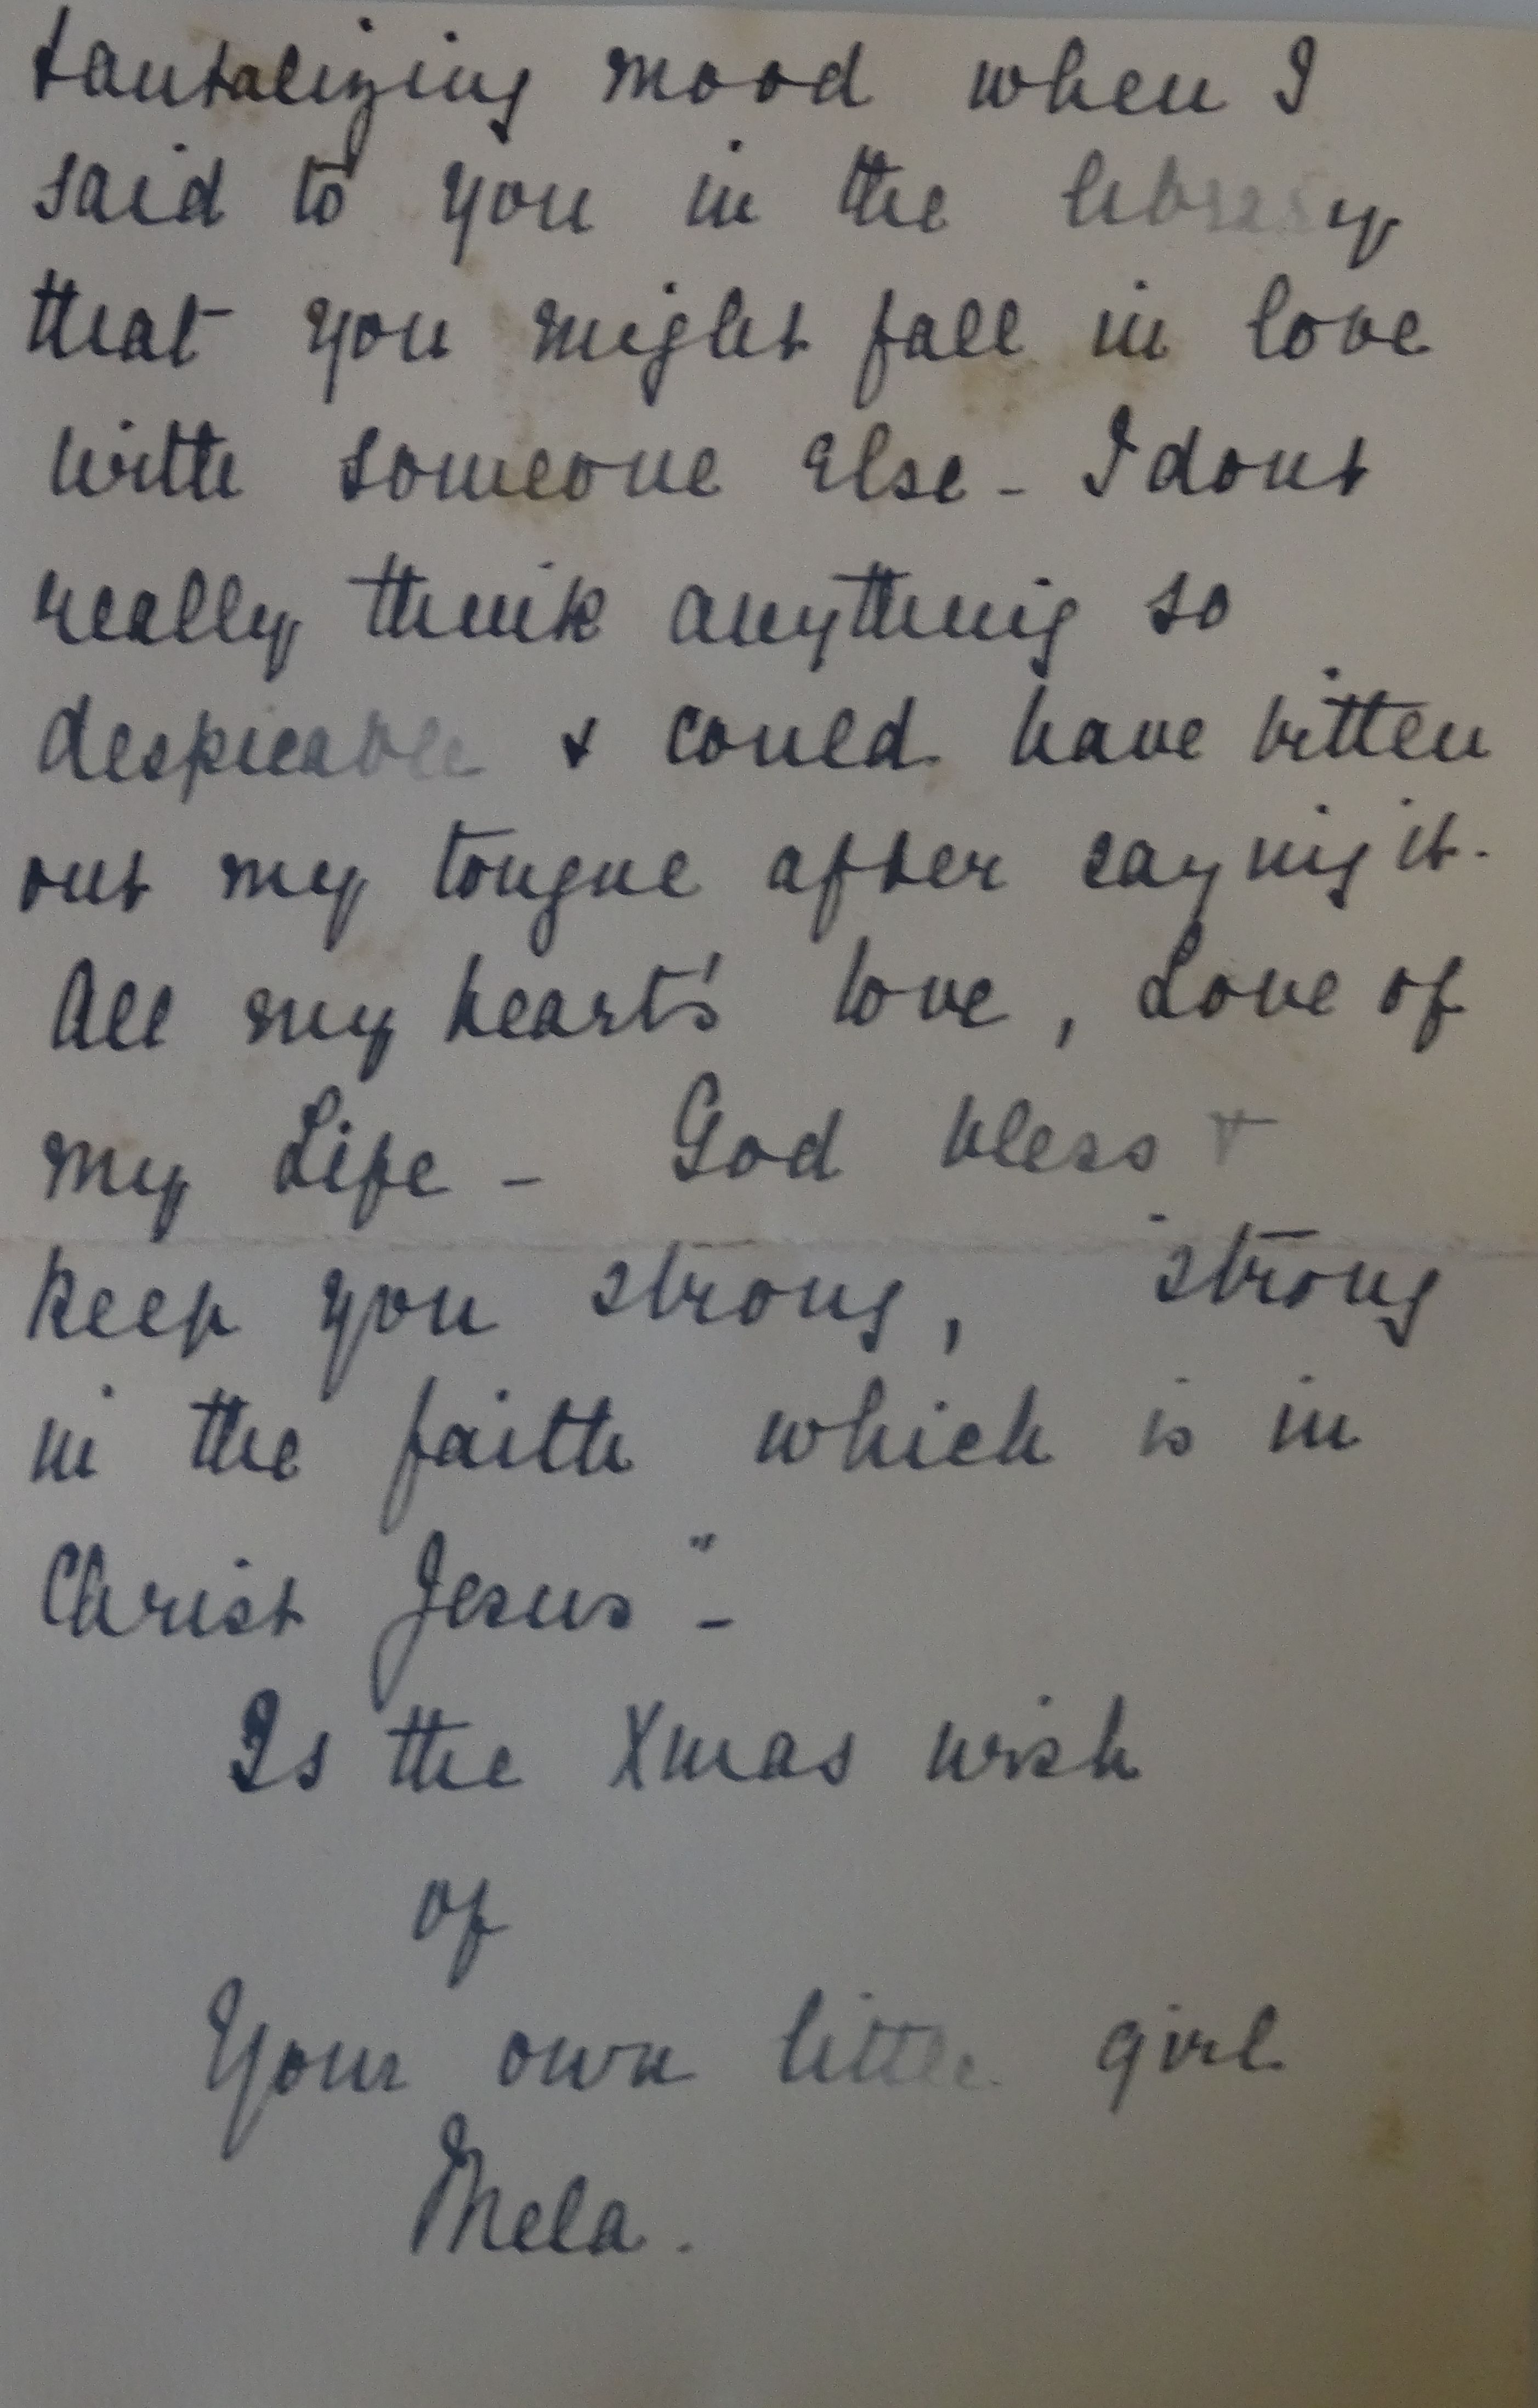 tantalizing mood when I
said to you in the library
that you might fall in love
with someone else - I dont
really think anything so
despicable & could have bitten
out my tongue after saying it.
All my heart's love, Love of
my Life - God bless &
keep you strong, "strong
in the faith which is in
Christ Jesus" -
Is the Xmas wish
of
Your own little girl
Mela.